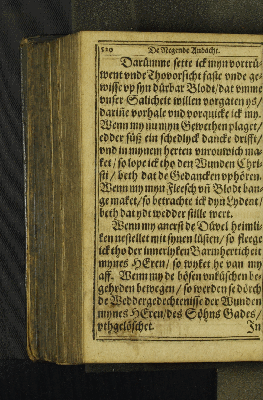 520 De Negende Andacht.
Darümme sette ick myn vortrü-
went vnde Thovorsicht faste vnde ge-
wisse vp syn dürbar Blodt / dat vmme
vnser Salicheit willen vorgaten ys /
dariñe vorhale vnd vorquicke ick my.
Wenn my nu myn Gewethen plaget /
edder süß ein schedlyck danck drifft /
vnd in mynem herten vnrouwich ma-
ket / so lope ick tho den Wunden Chri-
sti / beth dat de Gedancken vphören.
Wenn my myn Fleesch vñ Blodt ban-
ge maket / so betrachte ick dyn Lydent /
beth dat ydt wedder stille wert.
Wenn my anerst de Düvel heimli-
ken nestellet mit synen lüsten / so flege
ick tho der innerlyken Barmherticheit
mynes HEren / so wyket he van my
aff. Wenn my de bösen vnküschen be-
gehrden bewegen / so werden se dörch
de Weddergedechtenisse der Wunden
mynes HEren / des Söhns Gades /
vthgelöschet. In